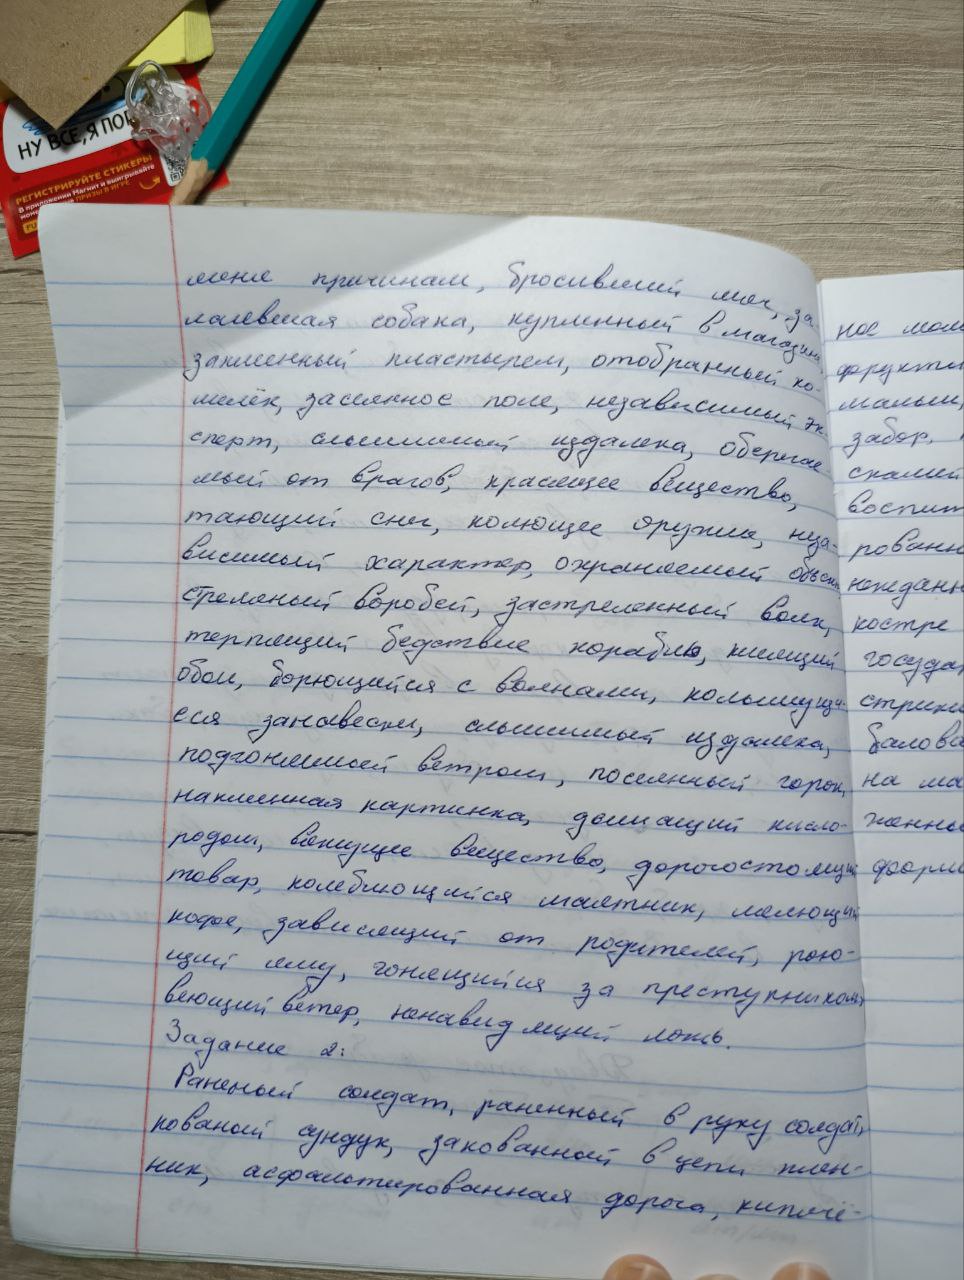 НУ ВСЕ, Я ПОР
РЕГИСТРИРУЙТЕ СТИКЕРЫ
В приложении Магнит и выигрывайте
ПРИЗЫ В ИГРЕ
причинам, бросивший мяч, за-
лаявшая собака, купленный в магазине
заклеенный пластырем, отобранный ко-
шелёк, засеянное поле, независимый эк-
сперт, слышимый издалека, оберегае-
мый от врагов, красящее вещество,
тающий снег, колющее оружие, неза-
висимый характер, охраняемый объект
стреляный воробей, застреленный волк,
терпящий бедствие корабль, клеящий
обои, борющийся с волнами, колышуща-
еся занавески, слышимый издалека,
подгоняемый ветром, посеянный горох,
наклеенная картинка, дышащий кисло-
родом, вяжущее вещество, дорогостоящий
товар, колеблющийся маятник, мелющий
кофе, зависящий от родителей, рою-
щий яму, гонящийся за преступником,
веющий ветер, ненавидящий ложь.
Задание 2:
Раненый солдат, раненный в руку солдат,
кованый сундук, закованный в цепи плен-
ник, асфальтированная дорога, кипячё-
ное моло
фрукты
малыш,
забор.
скамей
воспит
рованн
нежданн
костре
госуда
стриже
балова
на ма
женны
форми